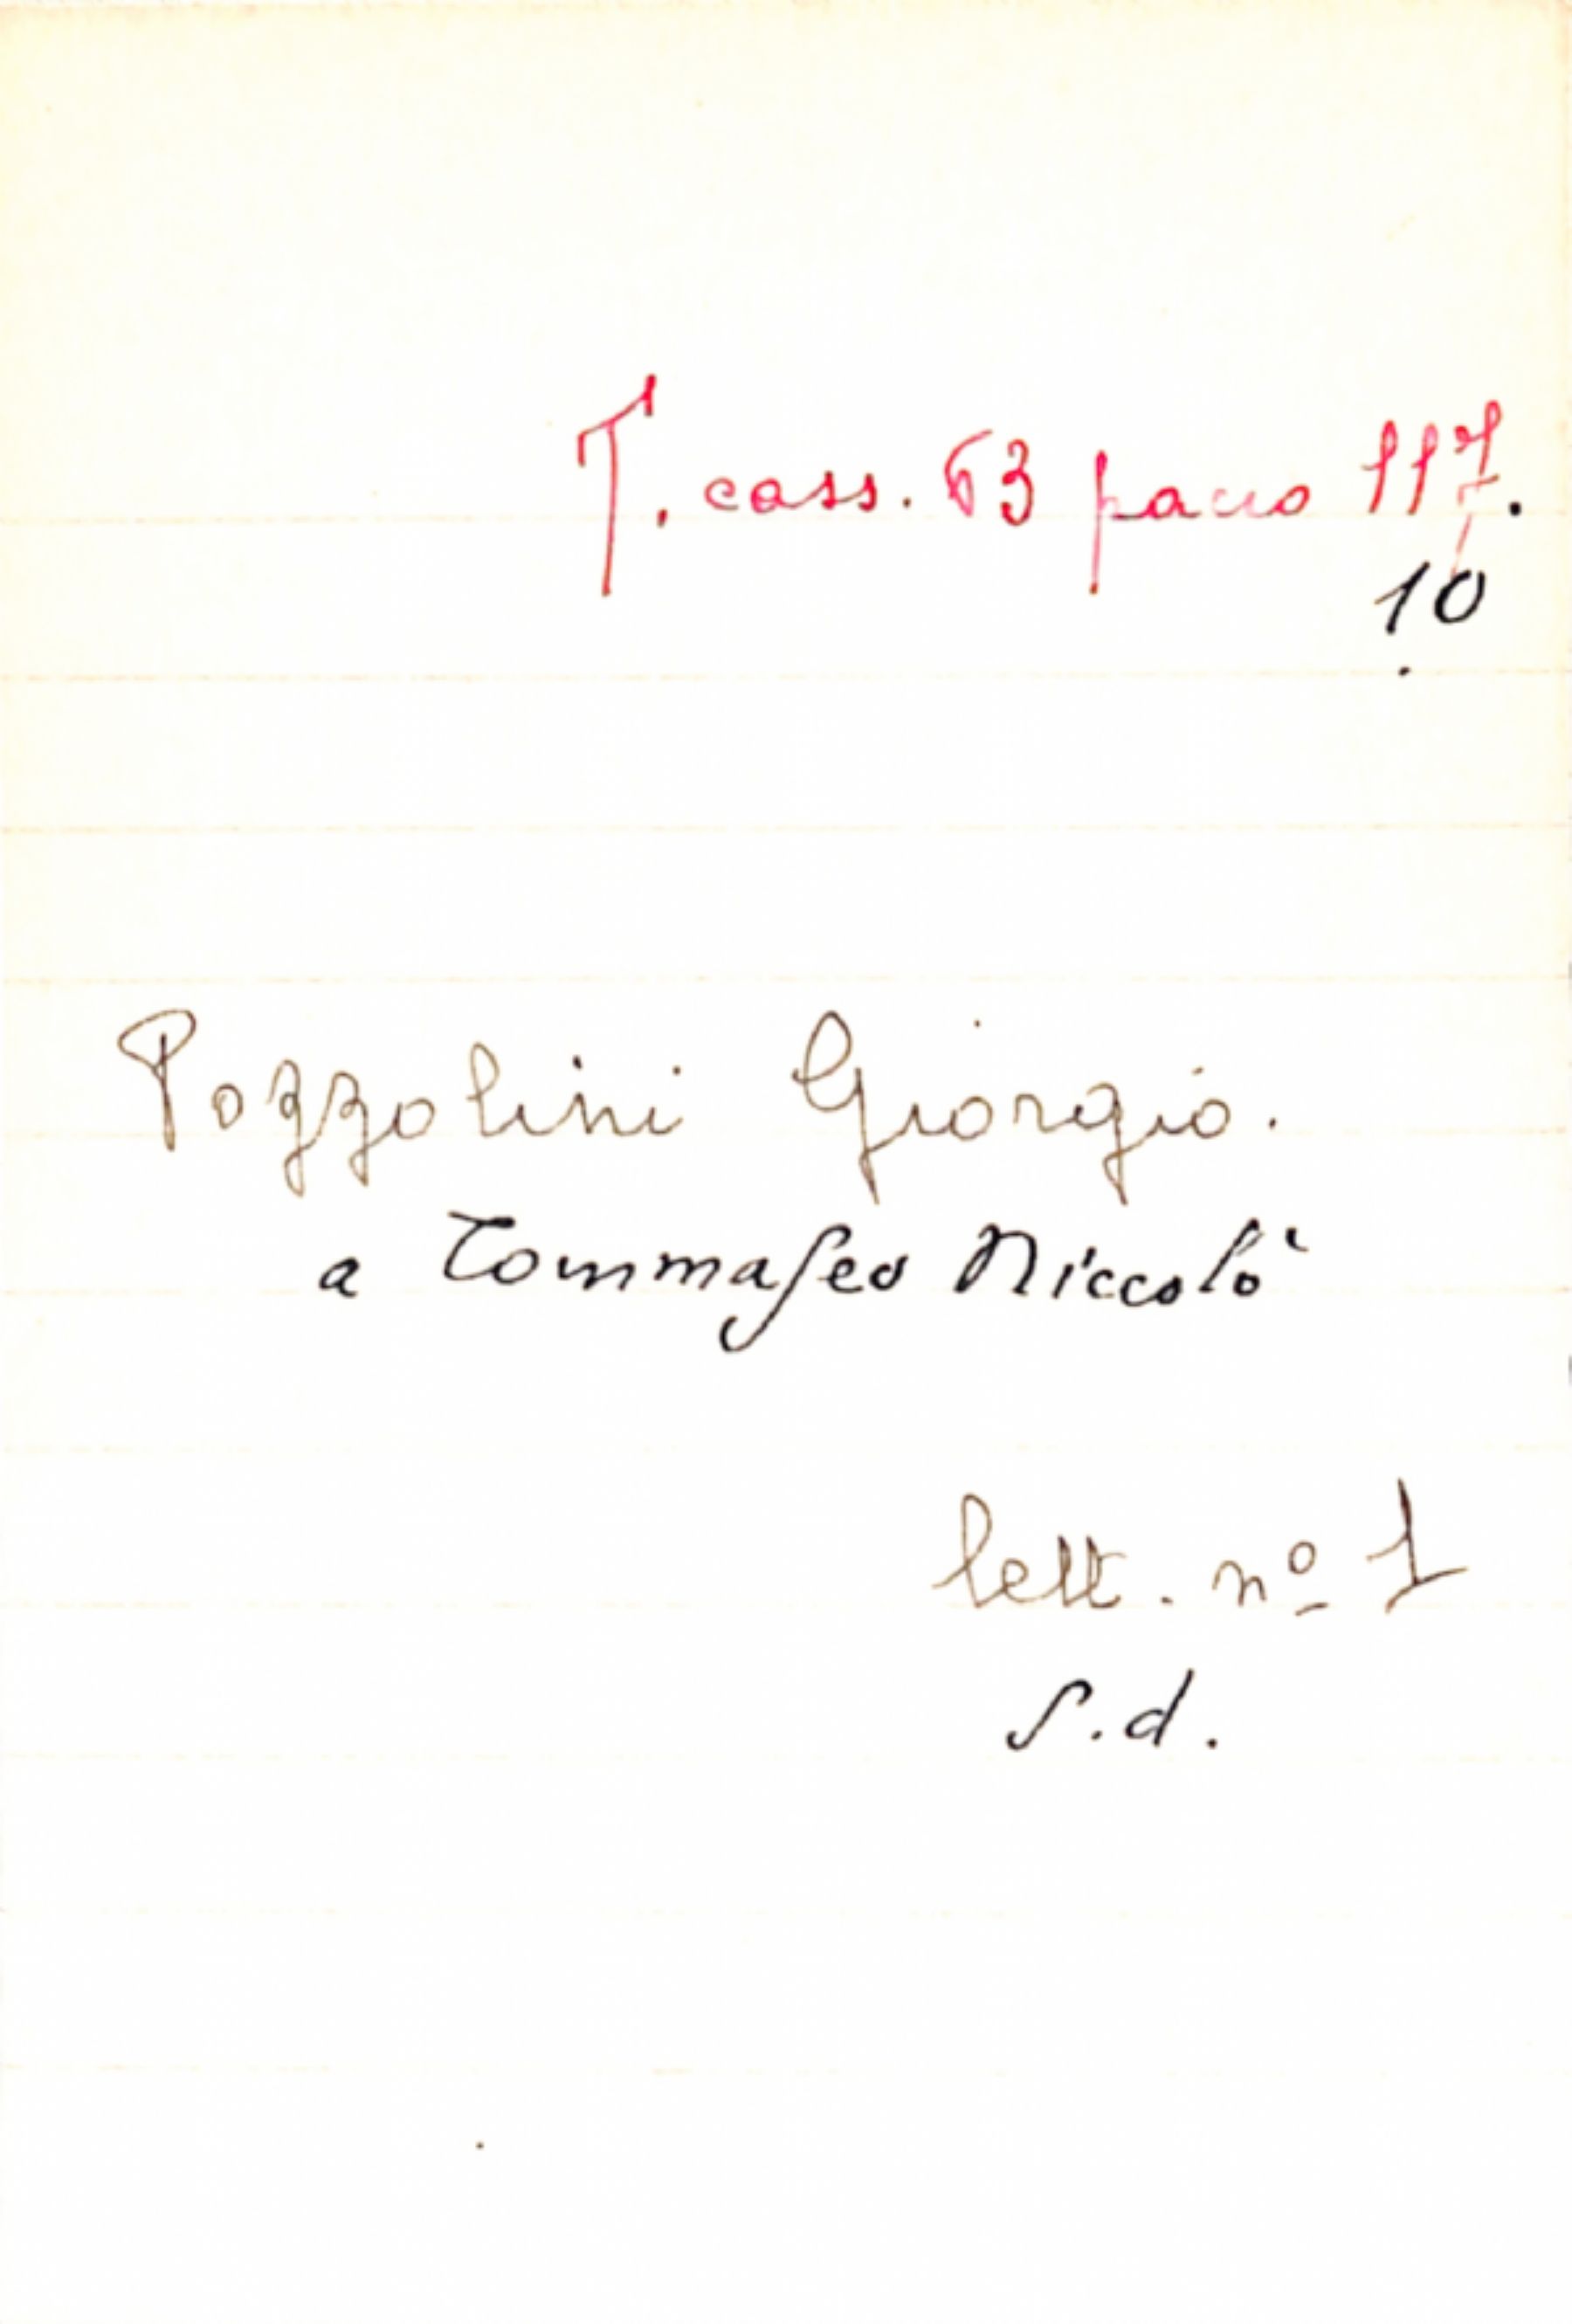 T. cass. 63 pacco 117.
10
Pozzolini Giorgio.
a Tommaseo Niccolò
lett. nº 1
s.d.